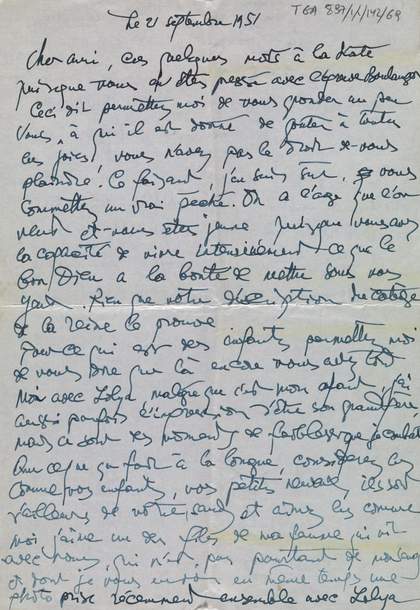 TGA 897/1/1/142/69
Le 21 septembre 1951
Cher ami, ces quelques mots à la hâte
puisque vous en êtes pressé avec
Ceci dit permettez moi de vous gronder un peu
Vous, à qui il est donné de goûter à toutes
les joies, vous n'avez pas le droit de vous
plaindre. Ce faisant, j'en suis sur, vous
commettez un vrai péché. On a l'age que l'on
veut et vous êtes jeune puisque vous avez
la capacité de vivre intensément ce que le
bon Dieu a la bonté de mettre sous vos
yeux. Rien que votre description du
de la reine le prouve
Pour ce qui est des enfants permettez moi
de vous dire que là encore vous avez tort
Moi avec Lolya, malgré que c'est mon enfant, j'ai
aussi parfois l'impression d'être son grand père
mais ce sont des moments de faiblesse que je combats
ce qu'on fait à la longue, considérez les
comme vos enfants, vos petits neveux, ils sont
d'ailleurs de votre sang et aimez les comme
moi j'aime un des fils de ma femme qui vit
avec nous, qui n'est pas pourtant de mon sang
et dont je vous envoie en même temps une
photo prise récemment ensemble avec Lolya